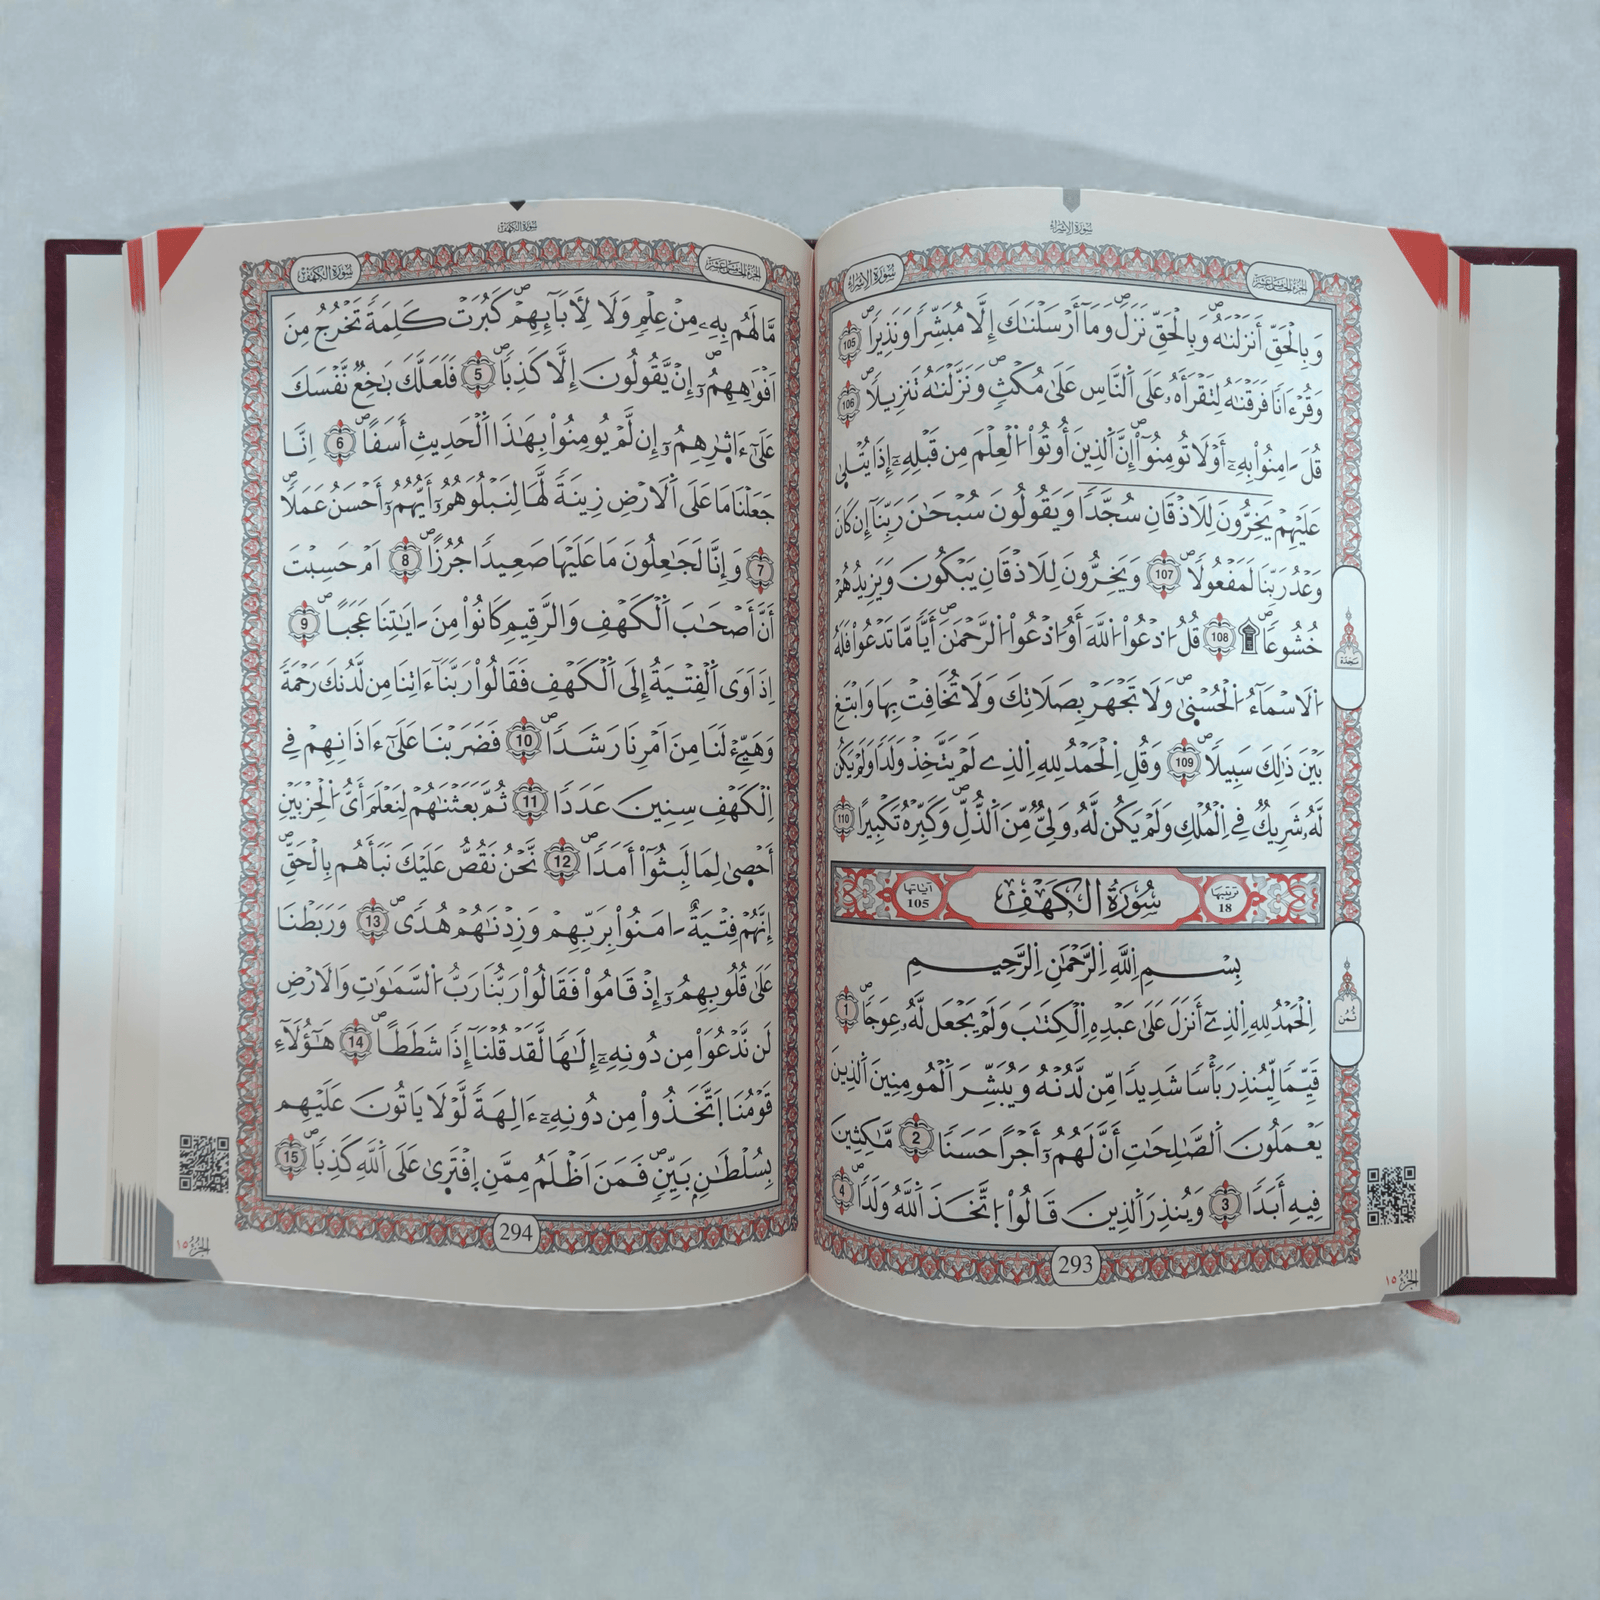 سورة الإسراء
سورة الإسراء
الجزء الخامس عشر
وَبِالْحَقِّ أَنزَلْنَٰهُ وَبِالْحَقِّ نَزَلَ وَمَآ أَرْسَلْنَٰكَ إِلَّا مُبَشِّرًا وَنَذِيرًا 105
وَقُرْءَانًا فَرَقْنَٰهُ لِتَقْرَأَهُۥ عَلَى اَلنَّاسِ عَلَىٰ مُكْثٍ وَنَزَّلْنَٰهُ تَنزِيلًا 106
قُلَ ـامِنُوا۟ بِهِۦٓ أَوْ لَا تُومِنُوٓا۟ إِنَّ اَلذِينَ أُوتُوا۟ اُلْعِلْمَ مِن قَبْلِهِۦٓ إِذَا يُتْلَىٰ
عَلَيْهِمْ يَخِرُّونَ لِلَاذْقَانِ سُجَّدًا وَيَقُولُونَ سُبْحَٰنَ رَبِّنَآ إِن كَانَ
وَعْدُ رَبِّنَا لَمَفْعُولًا 107 وَيَخِرُّونَ لِلَاذْقَانِ يَبْكُونَ وَيَزِيدُهُمْ
خُشُوعًا 108 قُلُ اُدْعُوا۟ اُللَّهَ أَوُ اُدْعُوا۟ اُلرَّحْمَٰنَ أَيًّا مَّا تَدْعُوا۟ فَلَهُ
اُلَاسْمَآءُ اُلْحُسْنَىٰ وَلَا تَجْهَرْ بِصَلَاتِكَ وَلَا تُخَافِتْ بِهَا وَابْتَغِ
بَيْنَ ذَٰلِكَ سَبِيلًا 109 وَقُلِ اِلْحَمْدُ لِلهِ اِلذِے لَمْ يَتَّخِذْ وَلَدًا وَلَمْ يَكُن
لَّهُۥ شَرِيكٌ فِے اِلْمُلْكِ وَلَمْ يَكُن لَّهُۥ وَلِيٌّ مِّنَ اَلذُّلِّ وَكَبِّرْهُ تَكْبِيرًا 110
ترتيبها 18
سُورَةُ الكَهْفِ
آياتها 105
بِسْمِ اِللَّهِ اِلرَّحْمَٰنِ اِلرَّحِيمِ
اِلْحَمْدُ لِلهِ اِلذِےٓ أَنزَلَ عَلَىٰ عَبْدِهِ اِلْكِتَٰبَ وَلَمْ يَجْعَل لَّهُۥ عِوَجًا 1
قَيِّمًا لِّيُنذِرَ بَأْسًا شَدِيدًا مِّن لَّدُنْهُ وَيُبَشِّرَ اَلْمُومِنِينَ اَلذِينَ
يَعْمَلُونَ اَلصَّٰلِحَٰتِ أَنَّ لَهُمُۥٓ أَجْرًا حَسَنًا 2 مَّٰكِثِينَ
فِيهِ أَبَدًا 3 وَيُنذِرَ اَلذِينَ قَالُوا۟ اُتَّخَذَ اَللَّهُ وَلَدًا 4
سجدة
ثمن
293
الجزء ١٥
سورة الكهف
سورة الكهف
الجزء الخامس عشر
مَّا لَهُم بِهِۦ مِنْ عِلْمٍ وَلَا لِأَبَآئِهِمْ كَبُرَتْ كَلِمَةً تَخْرُجُ مِنَ
اَفْوَٰهِهِمُۥٓ إِنْ يَّقُولُونَ إِلَّا كَذِبًا 5 فَلَعَلَّكَ بَٰخِعٌ نَّفْسَكَ
عَلَىٰٓ ءَاثٰ۪رِهِمُۥٓ إِن لَّمْ يُومِنُوا۟ بِهَٰذَا اَلْحَدِيثِ أَسَفًا 6 اِنَّا
جَعَلْنَا مَا عَلَى اَلَارْضِ زِينَةً لَّهَا لِنَبْلُوَهُمُۥٓ أَيُّهُمُۥٓ أَحْسَنُ عَمَلًا
7 وَإِنَّا لَجَٰعِلُونَ مَا عَلَيْهَا صَعِيدًا جُرُزًا 8 اَمْ حَسِبْتَ
أَنَّ أَصْحَٰبَ اَلْكَهْفِ وَالرَّقِيمِ كَانُوا۟ مِنَ ـايَٰتِنَا عَجَبًا 9
اِذَ اَوَى اَلْفِتْيَةُ إِلَى اَلْكَهْفِ فَقَالُوا۟ رَبَّنَآ ءَاتِنَا مِن لَّدُنكَ رَحْمَةً
وَهَيِّۓْ لَنَا مِنَ اَمْرِنَا رَشَدًا 10 فَضَرَبْنَا عَلَىٰٓ ءَاذَانِهِمْ فِے
اِلْكَهْفِ سِنِينَ عَدَدًا 11 ثُمَّ بَعَثْنَٰهُمْ لِنَعْلَمَ أَيُّ اُلْحِزْبَيْنِ
أَحْصَىٰ لِمَا لَبِثُوٓا۟ أَمَدًا 12 نَّحْنُ نَقُصُّ عَلَيْكَ نَبَأَهُم بِالْحَقِّ
إِنَّهُمْ فِتْيَةٌ ـامَنُوا۟ بِرَبِّهِمْ وَزِدْنَٰهُمْ هُدًى 13 وَرَبَطْنَا
عَلَىٰ قُلُوبِهِمُۥٓ إِذْ قَامُوا۟ فَقَالُوا۟ رَبُّنَا رَبُّ اُلسَّمَٰوَٰتِ وَالَارْضِ
لَن نَّدْعُوَا۟ مِن دُونِهِۦٓ إِلَٰهًا لَّقَدْ قُلْنَآ إِذًا شَطَطًا 14 هَٰٓؤُلَآءِ
قَوْمُنَا اَتَّخَذُوا۟ مِن دُونِهِۦٓ ءَالِهَةً لَّوْلَا يَاتُونَ عَلَيْهِم
بِسُلْطَٰنٍ بَيِّنٍ فَمَنَ اَظْلَمُ مِمَّنِ اِفْتَر۪ىٰ عَلَى اَللَّهِ كَذِبًا 15
294
الجزء ١٥